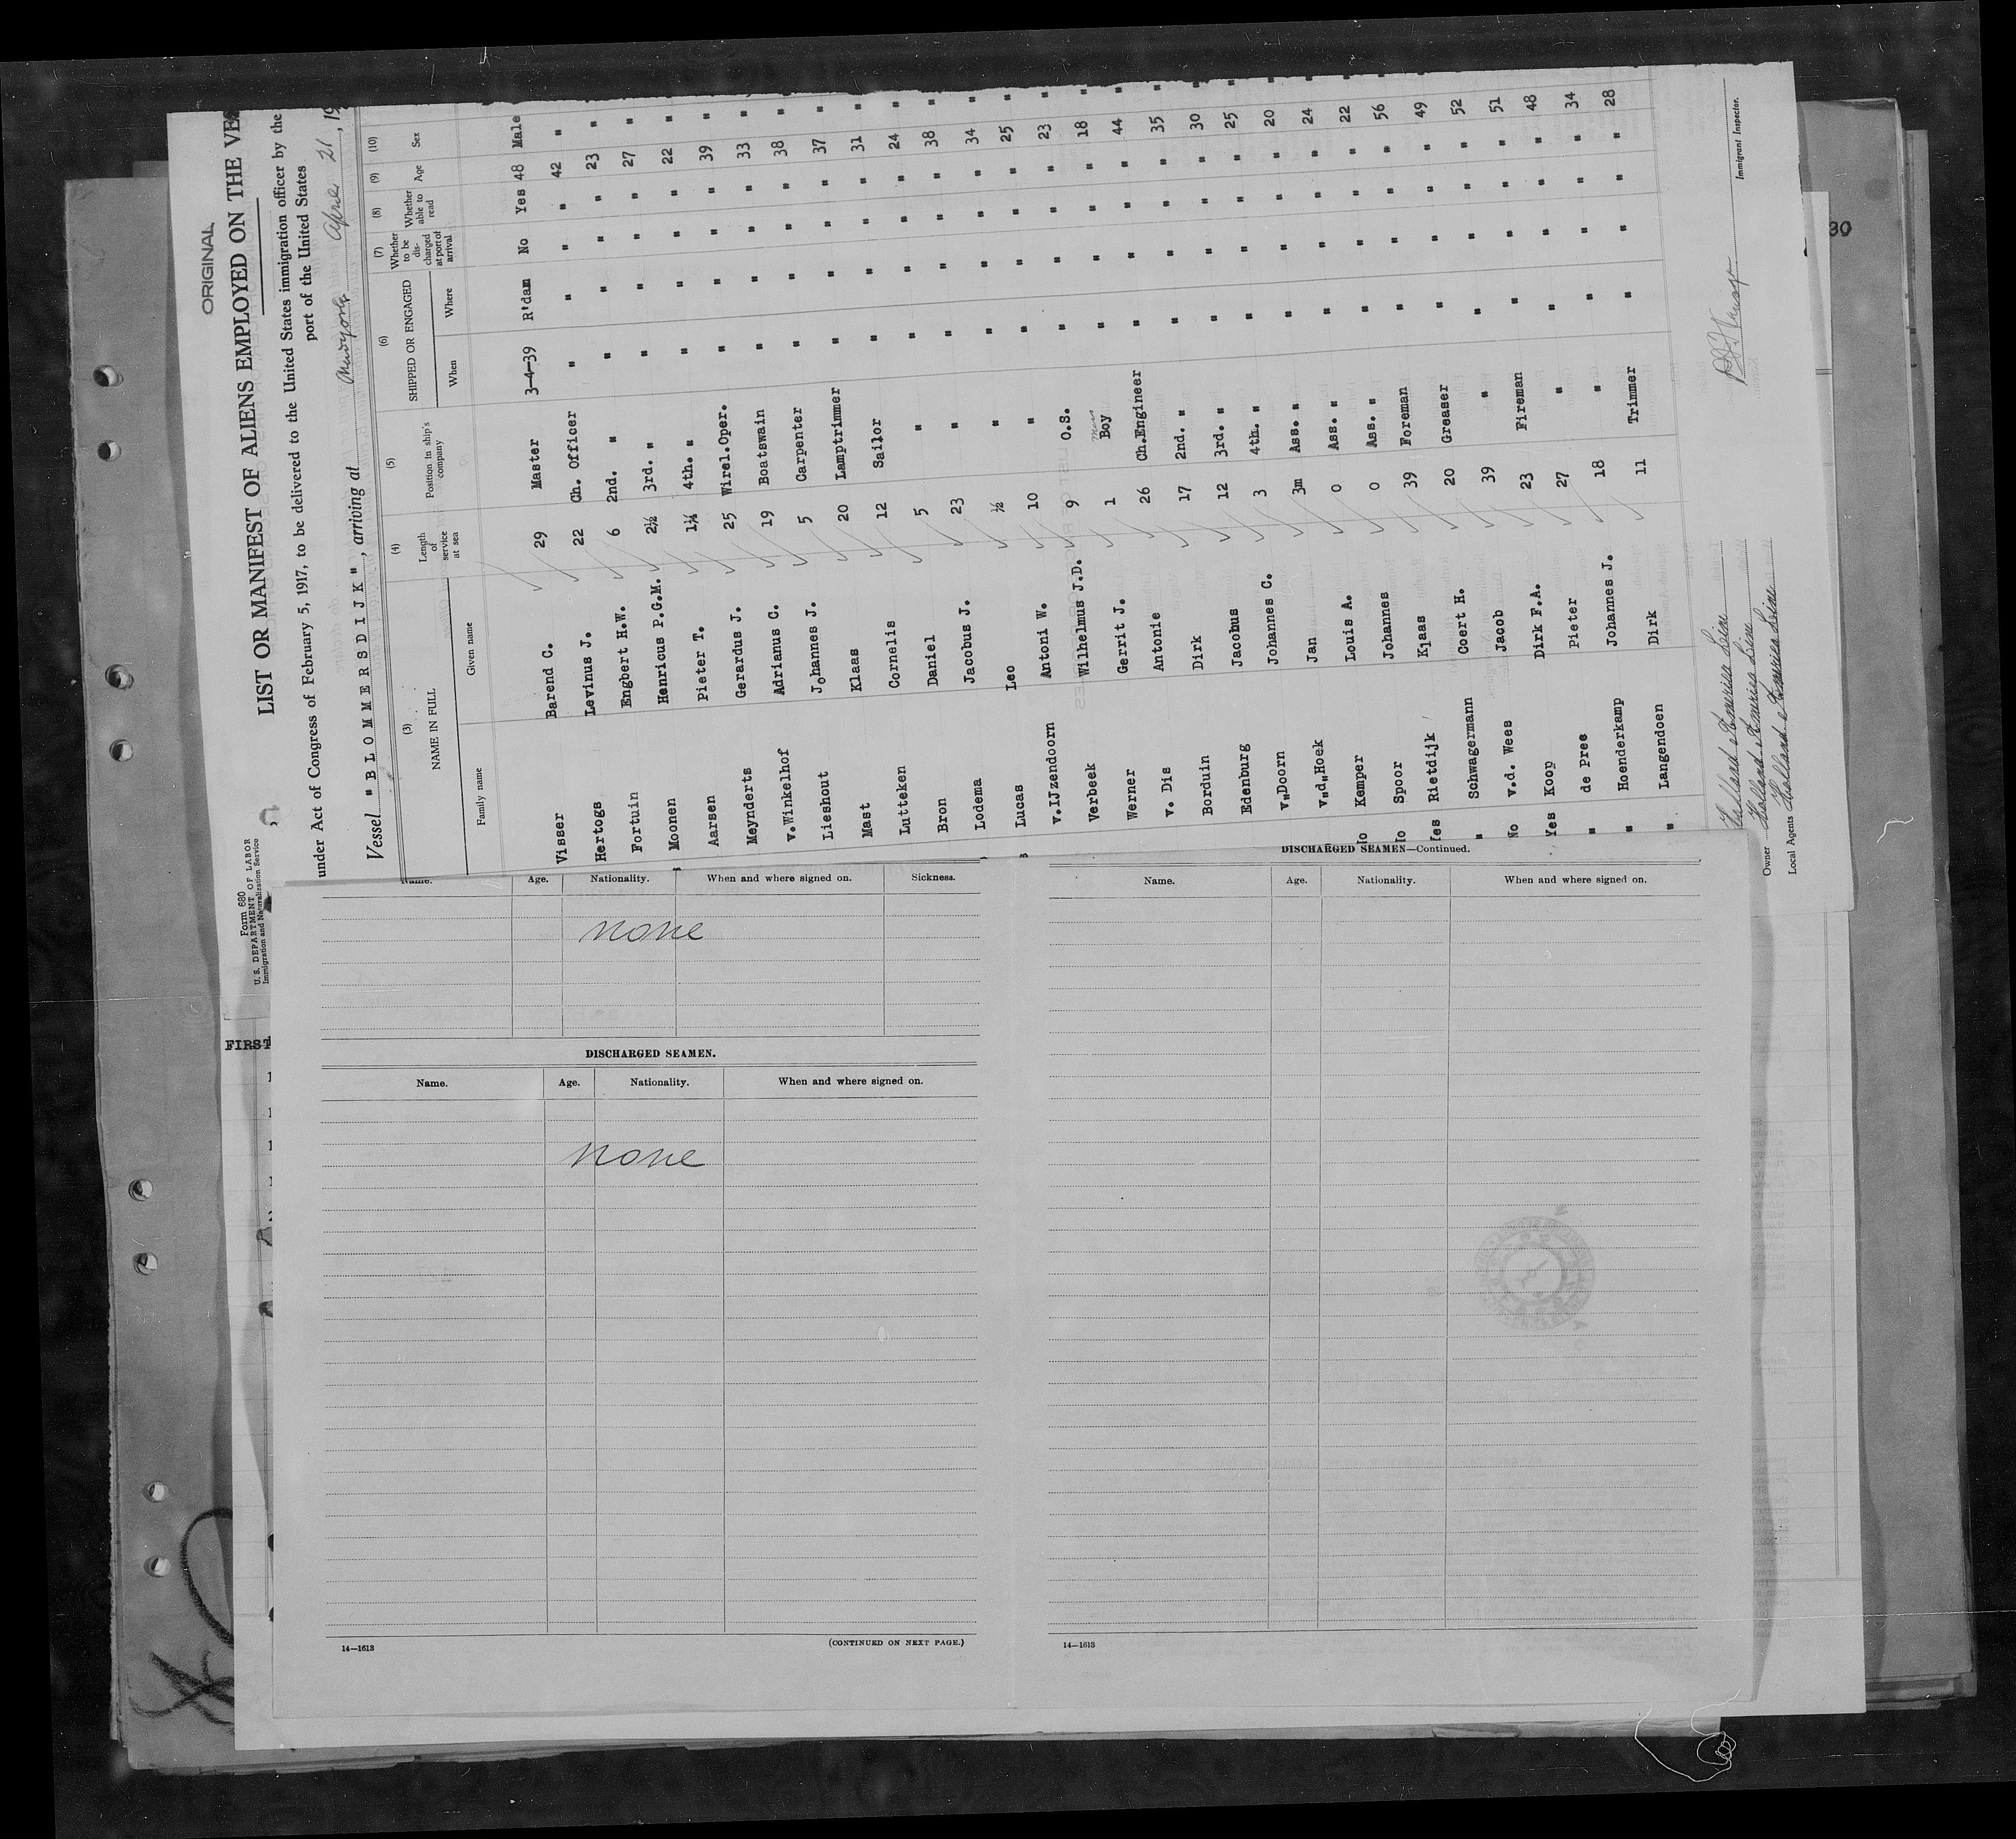 ORIGINAL
Form 680
U. S. DEPARTMENT OF LABOR
Immigration and Naturalization Service
LIST OR MANIFEST OF ALIENS EMPLOYED ON THE VES
under Act of Congress of February 5, 1917, to be delivered to the United States immigration officer by the
port of the United States
Vessel "BLOMMERSDIJK", arriving at April 21, 19
(3) (4) (5) (6) (7) (8) (9) (10)
NAME IN FULL Length of service at sea Position in ship's company SHIPPED OR ENGAGED Whether to be discharged at port of arrival Whether able to read Age Sex
Family name Given name When Where
Visser Barend C. 29 Master 3-4-39 R'dam No Yes 48 Male
Hertogs Levinus J. 22 Ch. Officer " " " " 42 "
Fortuin Engbert H.W. 6 2nd. " " " " " 23 "
Moonen Henricus P.G.M. 2½ 3rd. " " " " " 27 "
Aarsen Pieter T. 1¼ 4th. " " " " " 22 "
Meynderts Gerardus J. 25 Wirel.Oper. " " " " 39 "
v.Winkelhof Adrianus C. 19 Boatswain " " " " 33 "
Lieshout Johannes J. 5 Carpenter " " " " 38 "
Mast Klaas 20 Lamptrimmer " " " " 37 "
Lutteken Cornelis 12 Sailor " " " " 31 "
Bron Daniel 5 " " " " " 24 "
Lodema Jacobus J. 23 " " " " " 38 "
Lucas Leo ½ " " " " " 34 "
v.IJzendoorn Antoni W. 10 " " " " " 25 "
Verbeek Wilhelmus J.D. 9 O.S. " " " " 23 "
Werner Gerrit J. 1 mess Boy " " " " 18 "
v. Dis Antonie 26 Ch.Engineer " " " " 44 "
Borduin Dirk 17 2nd. " " " " " 35 "
Edenburg Jacobus 12 3rd. " " " " " 30 "
v"Doorn Johannes C. 3 4th. " " " " " 25 "
v"d"Hoek Jan 3m Ass. " " " " " 20 "
Kemper Louis A. 0 Ass. " " " " " 24 "
Spoor Johannes 0 Ass. " " " " " 22 "
Yes Rietdijk Klaas 39 Foreman " " " " 56 "
" Schwagermann Coert H. 20 Greaser " " " " 49 "
No v.d. Wees Jacob 39 " " " " " 52 "
Yes Koop Dirk F.A. 23 Fireman " " " " 51 "
" de Pree Pieter 27 " " " " " 48 "
" Hoenderkamp Johannes J. 18 " " " " " 34 "
" Langendoen Dirk 11 Trimmer " " " " 28 "
Holland America Line
Owner Holland America Line
Local Agents Holland America Line
Immigrant Inspector.
30
FIRST
Name. Age. Nationality. When and where signed on. Sickness.
none
DISCHARGED SEAMEN.
Name. Age. Nationality. When and where signed on.
none
14—1613 (CONTINUED ON NEXT PAGE.)
DISCHARGED SEAMEN—Continued.
Name. Age. Nationality. When and where signed on.
14—1613